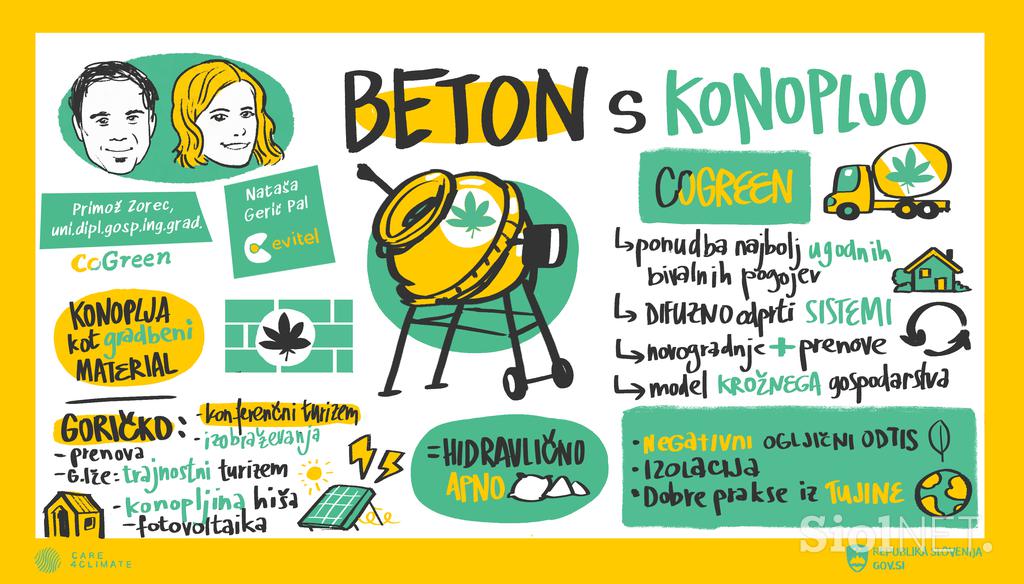 BETON S KONOPLJO
Primož Zorec,
uni.dipl.gosp.ing.grad.
CoGreen
Nataša
Gerič Pal
evitel
KONOPLJA
kot gradbeni
MATERIAL
GORIČKO:
- prenova
- G.lže: trajnostni turizem
- konopljina hiša
- fotovoltaika
- konferenčni turizem
- izobraževanja
= HIDRAVLIČNO
APNO
COGREEN
ponudba najbolj ugodnih
bivalnih pogojev
DIFUZNO odprti SISTEMI
novogradnje + prenove
model KROŽNEGA gospodarstva
• NEGATIVNI OGLJIČNI ODTIS
• IZOLACIJA
• Dobre prakse iz TUJINE
CARE
4CLIMATE
Siol NET.
REPUBLIKA SLOVENIJA
GOV.SI